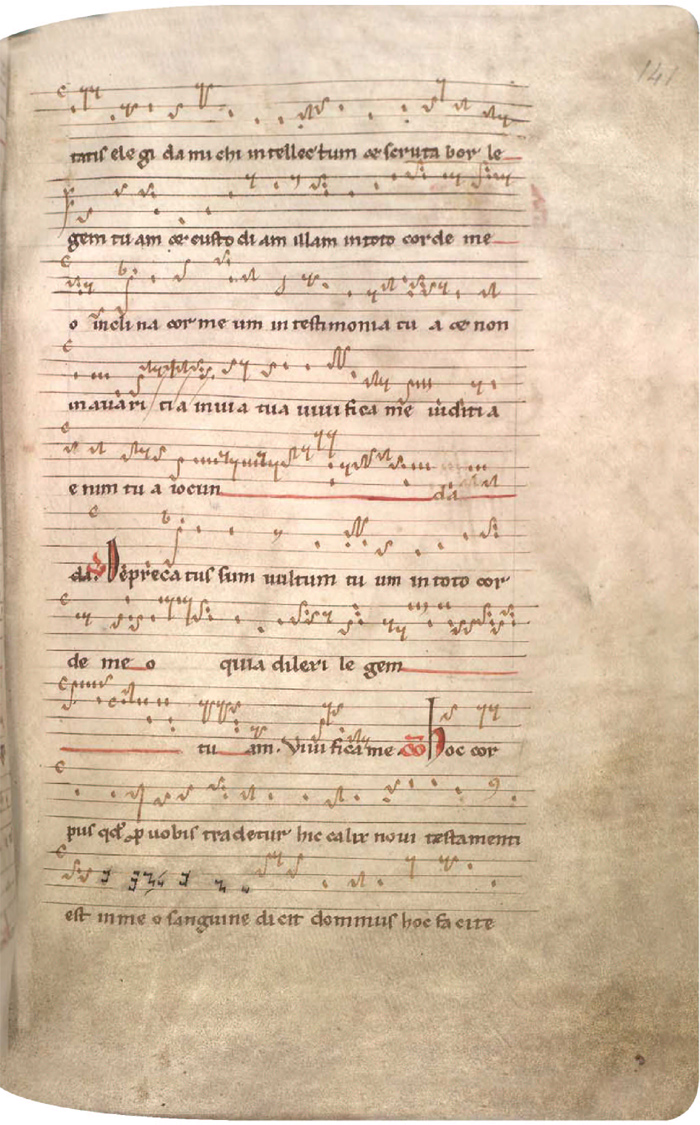 141
tatis ele gi da michi intellectum & scruta bor le
gem tu am & custo di am illam intoto corde me
o incli na cor me um in testimonia tu a & non
in avari ti a in uia tua uiui fica me iuditi a
e nim tu a iocun da
da. Deprecatus sum uultum tu um in toto cor
de me o quia dilexi le gem
tu am. Viui fica me. Co Hoc cor
pus qđ p uobis tradetur hic calix noui testamenti
est in me o sanguine dicit dominus hoc fa cite